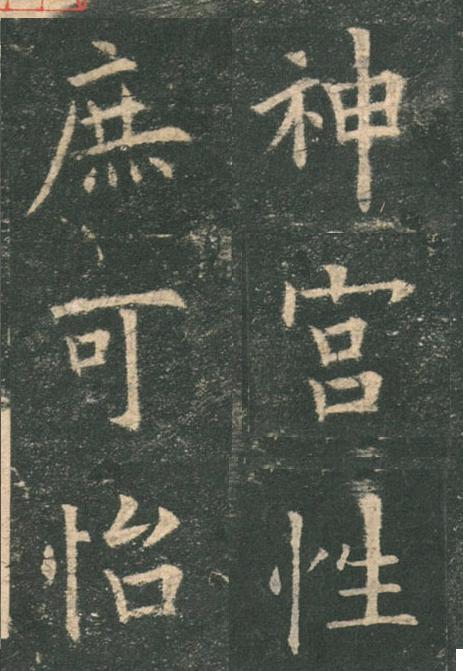 神宫性
庶可怡